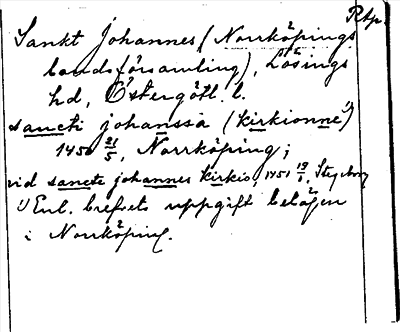 Rtp
Sankt Johannes (Norrköpings
landsförsamling), Lösings
hd, Östergötl. l.
sancti johanssa (kirkionne¹)
1450 21/5, Norrköping;
vid sancte johannes kirkio, 1451 19/1, Stegeborg
1) Enl. brefvets uppgift belägen
i Norrköping.